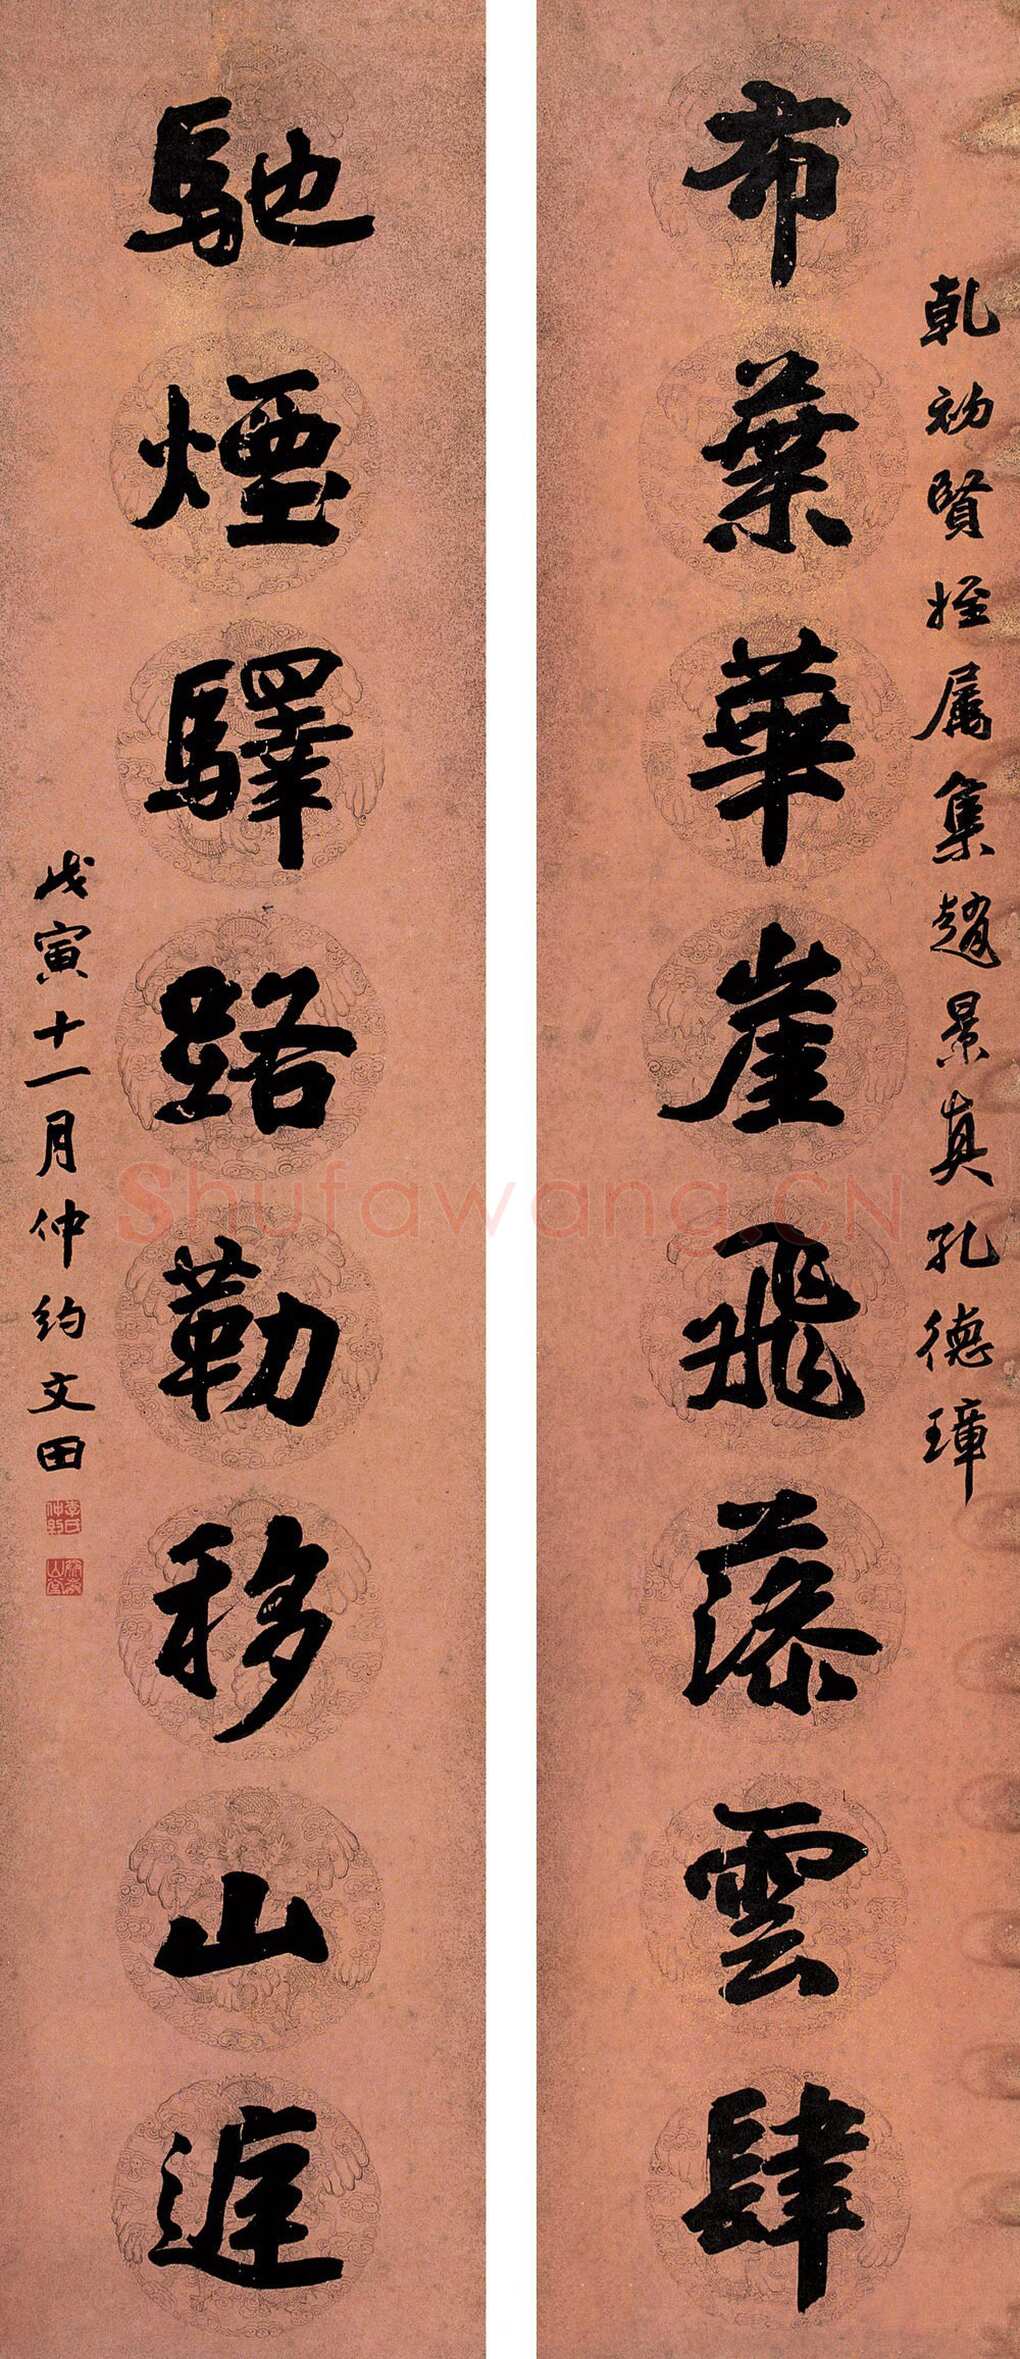 乾初賢姪属集趙景真孔德璋
布葉華崖飛藻雲肆
馳煙驛路勒移山庭
戊寅十一月仲約文田
李氏仲約
Shufawang.CN